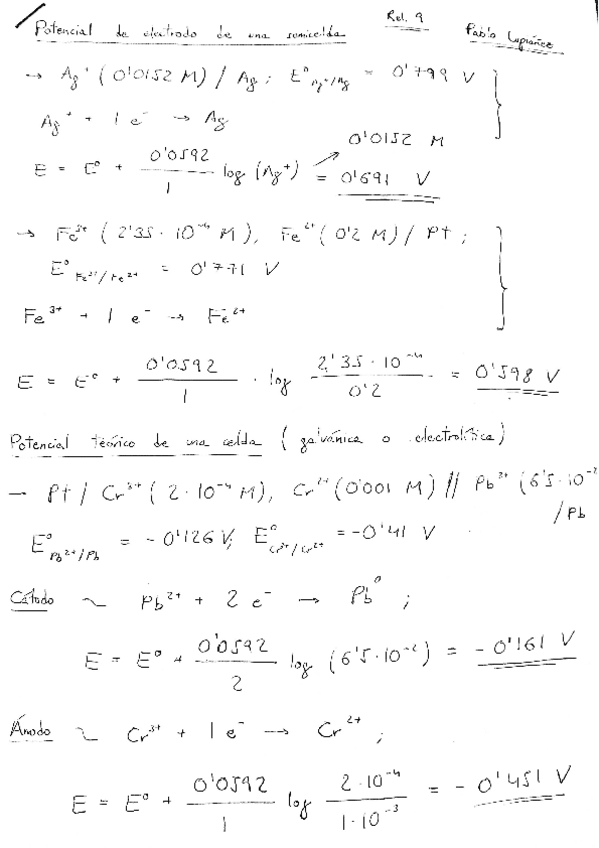 Potencial de electrodo de una semicelda Rel. 9 Pablo
→ Ag⁺ (0'0152 M) / Ag; E⁰ Ag⁺/Ag = 0'799 V
Ag⁺ + 1 e⁻ → Ag
0'0152 M
E = E⁰ + 0'0592/1 log (Ag⁺) = 0'691 V
→ Fe³⁺ (2'35·10⁻⁴ M), Fe²⁺ (0'2 M) / Pt;
E⁰ Fe³⁺/Fe²⁺ = 0'771 V
Fe³⁺ + 1 e⁻ → Fe²⁺
E = E⁰ + 0'0592/1 · log 2'35·10⁻⁴/0'2 = 0'598 V
Potencial teórico de una celda (galvánica o electrolítica)
→ Pt / Cr³⁺ (2·10⁻⁴ M), Cr²⁺ (0'001 M) // Pb²⁺ (6'5·10⁻²
/ Pb
E⁰ Pb²⁺/Pb = -0'126 V; E⁰ Cr³⁺/Cr²⁺ = -0'41 V
Cátodo ~ Pb²⁺ + 2 e⁻ → Pb⁰;
E = E⁰ + 0'0592/2 log (6'5·10⁻²) = -0'161 V
Ánodo ~ Cr³⁺ + 1 e⁻ → Cr²⁺;
E = E⁰ + 0'0592/1 log 2·10⁻⁴/1·10⁻³ = -0'451 V